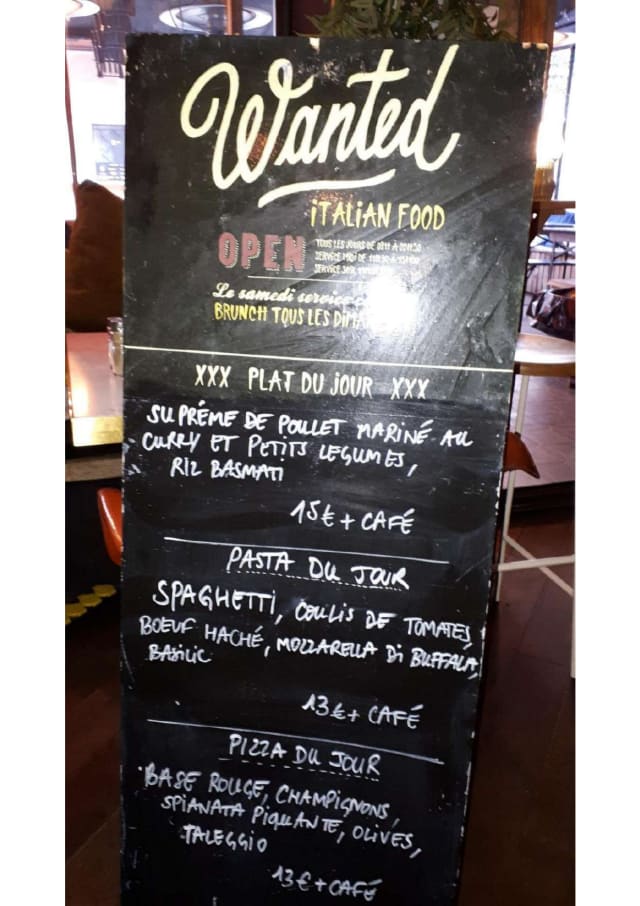 Wanted
ITALIAN FOOD
OPEN
TOUS LES JOURS DE
SERVICE MIDI DE
SERVICE SOIR
Le samedi service
BRUNCH TOUS LES
XXX PLAT DU JOUR XXX
SUPRÉME DE POULET MARINÉ AU
CURRY ET PETITS LEGUMES,
RIZ BASMATI
15€ + CAFÉ
PASTA DU JOUR
SPAGHETTI, COULIS DE TOMATES,
BOEUF HACHÉ, MOZZARELLA DI BUFFALA,
BASILIC
13€ + CAFÉ
PIZZA DU JOUR
BASE ROUGE, CHAMPIGNONS,
SPIANATA PIQUANTE, OLIVES,
TALEGGIO
13€ + CAFÉ